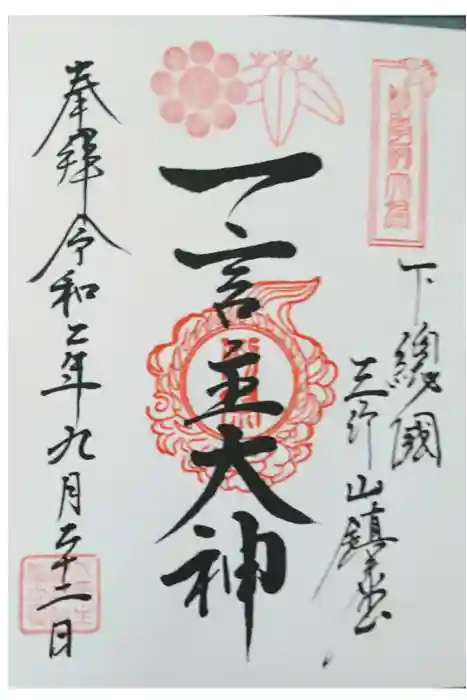 下總國
三野山鎮座
一言主大神
奉拜 令和二年九月二十二日